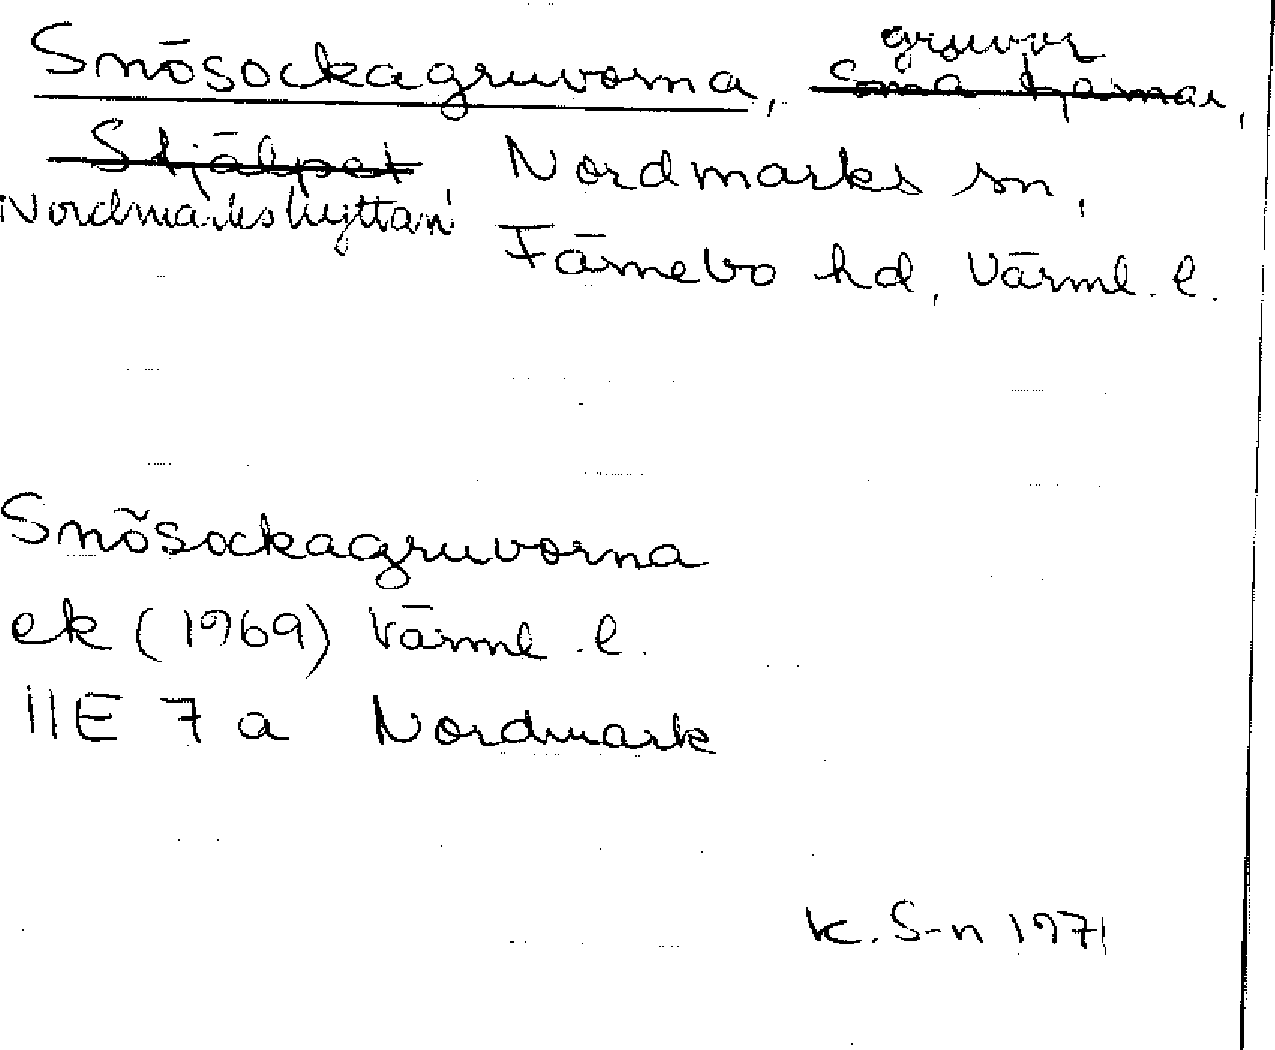 Snösockagruvorna, gruvor,
små tjärnar,
Stjälpet Nordmarks sn,
Nordmarkshyttan
Färnebo hd, Värml. l.
Snösockagruvorna
ek (1969) Värml. l.
11E 7a Nordmark
K. S-n 1971